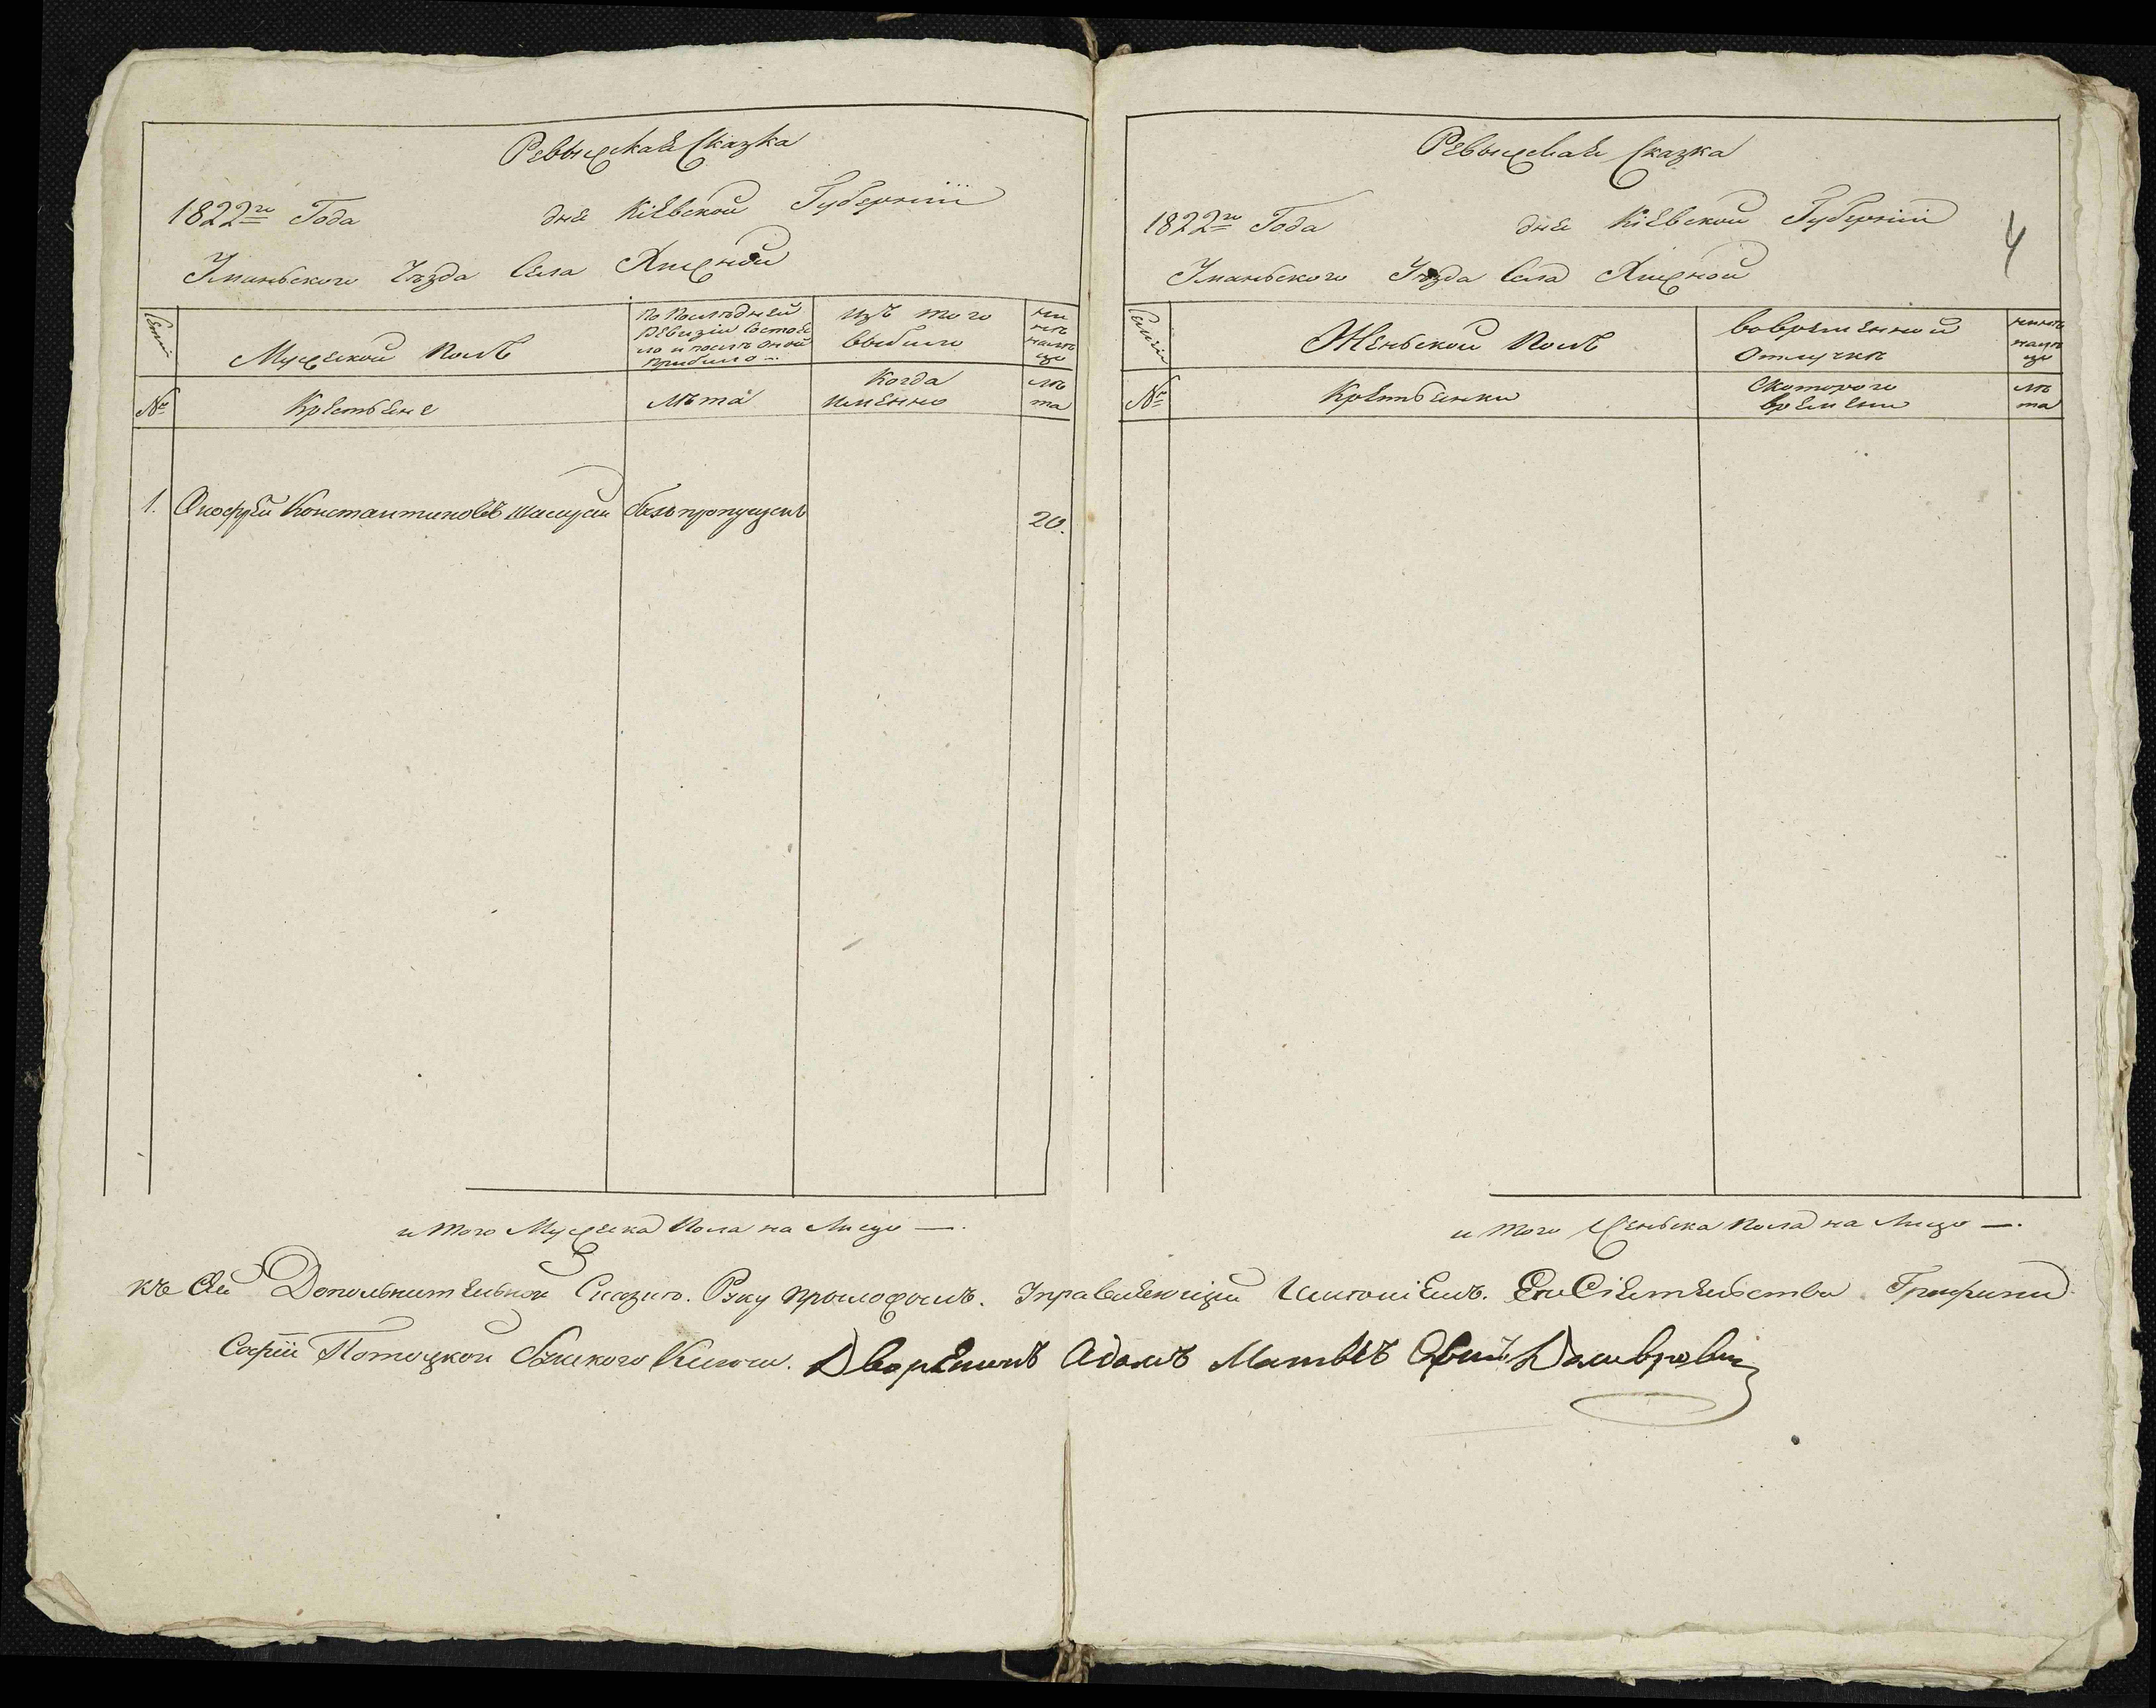 Ревыжская Сказка
1822го Года дня Кіевской Губерніи
Уманьского Уѣзда Села Хижной
Семіи
Мужеской Полъ
По Последней
Ревизіи Состоя
ло и после оной
прибыло
Изъ того
выбыло
Ны
нѣ
на ли
цо
№
Крестьяне
Лѣта
Когда
именно
лѣ
та
1. Онофрей Константиновъ былъ пропущенъ 20.
и того Мужеска Пола на Лицо —.
Ревыжская Сказка
1822го Года дня Кіевской Губерніи
4
Уманьского Уѣзда Села Хижной
Семіи
Женьской Полъ
Во временной
Отлучкѣ
№
Крестьянки
С которого
времени
лѣ
та
и того Женьска Пола на Лицо —.
къ сей Дополнительной Сказки. Руку приложилъ. Управляющий Имѣніемъ. Ея Сіятельства Графини
Софіи Потоцкой Ключа. Дворянинъ Адамъ Матвѣевъ Сынъ Домбровскій